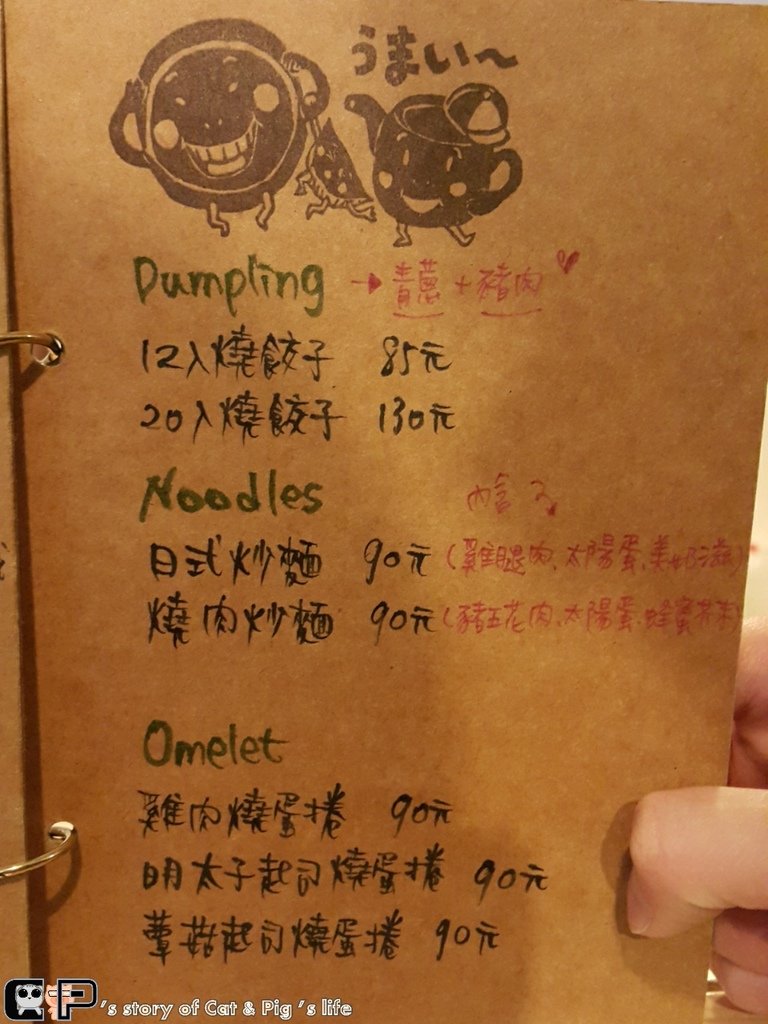 うまい〜
Dumpling → 青蔥+豬肉
12入燒餃子 85元
20入燒餃子 130元
Noodles 內含
日式炒麵 90元(雞腿肉、太陽蛋、美奶滋)
燒肉炒麵 90元(豬五花肉、太陽蛋、蜂蜜芥末)
Omelet
雞肉燒蛋捲 90元
明太子起司燒蛋捲 90元
蕈菇起司燒蛋捲 90元
CP's story of Cat & Pig's life